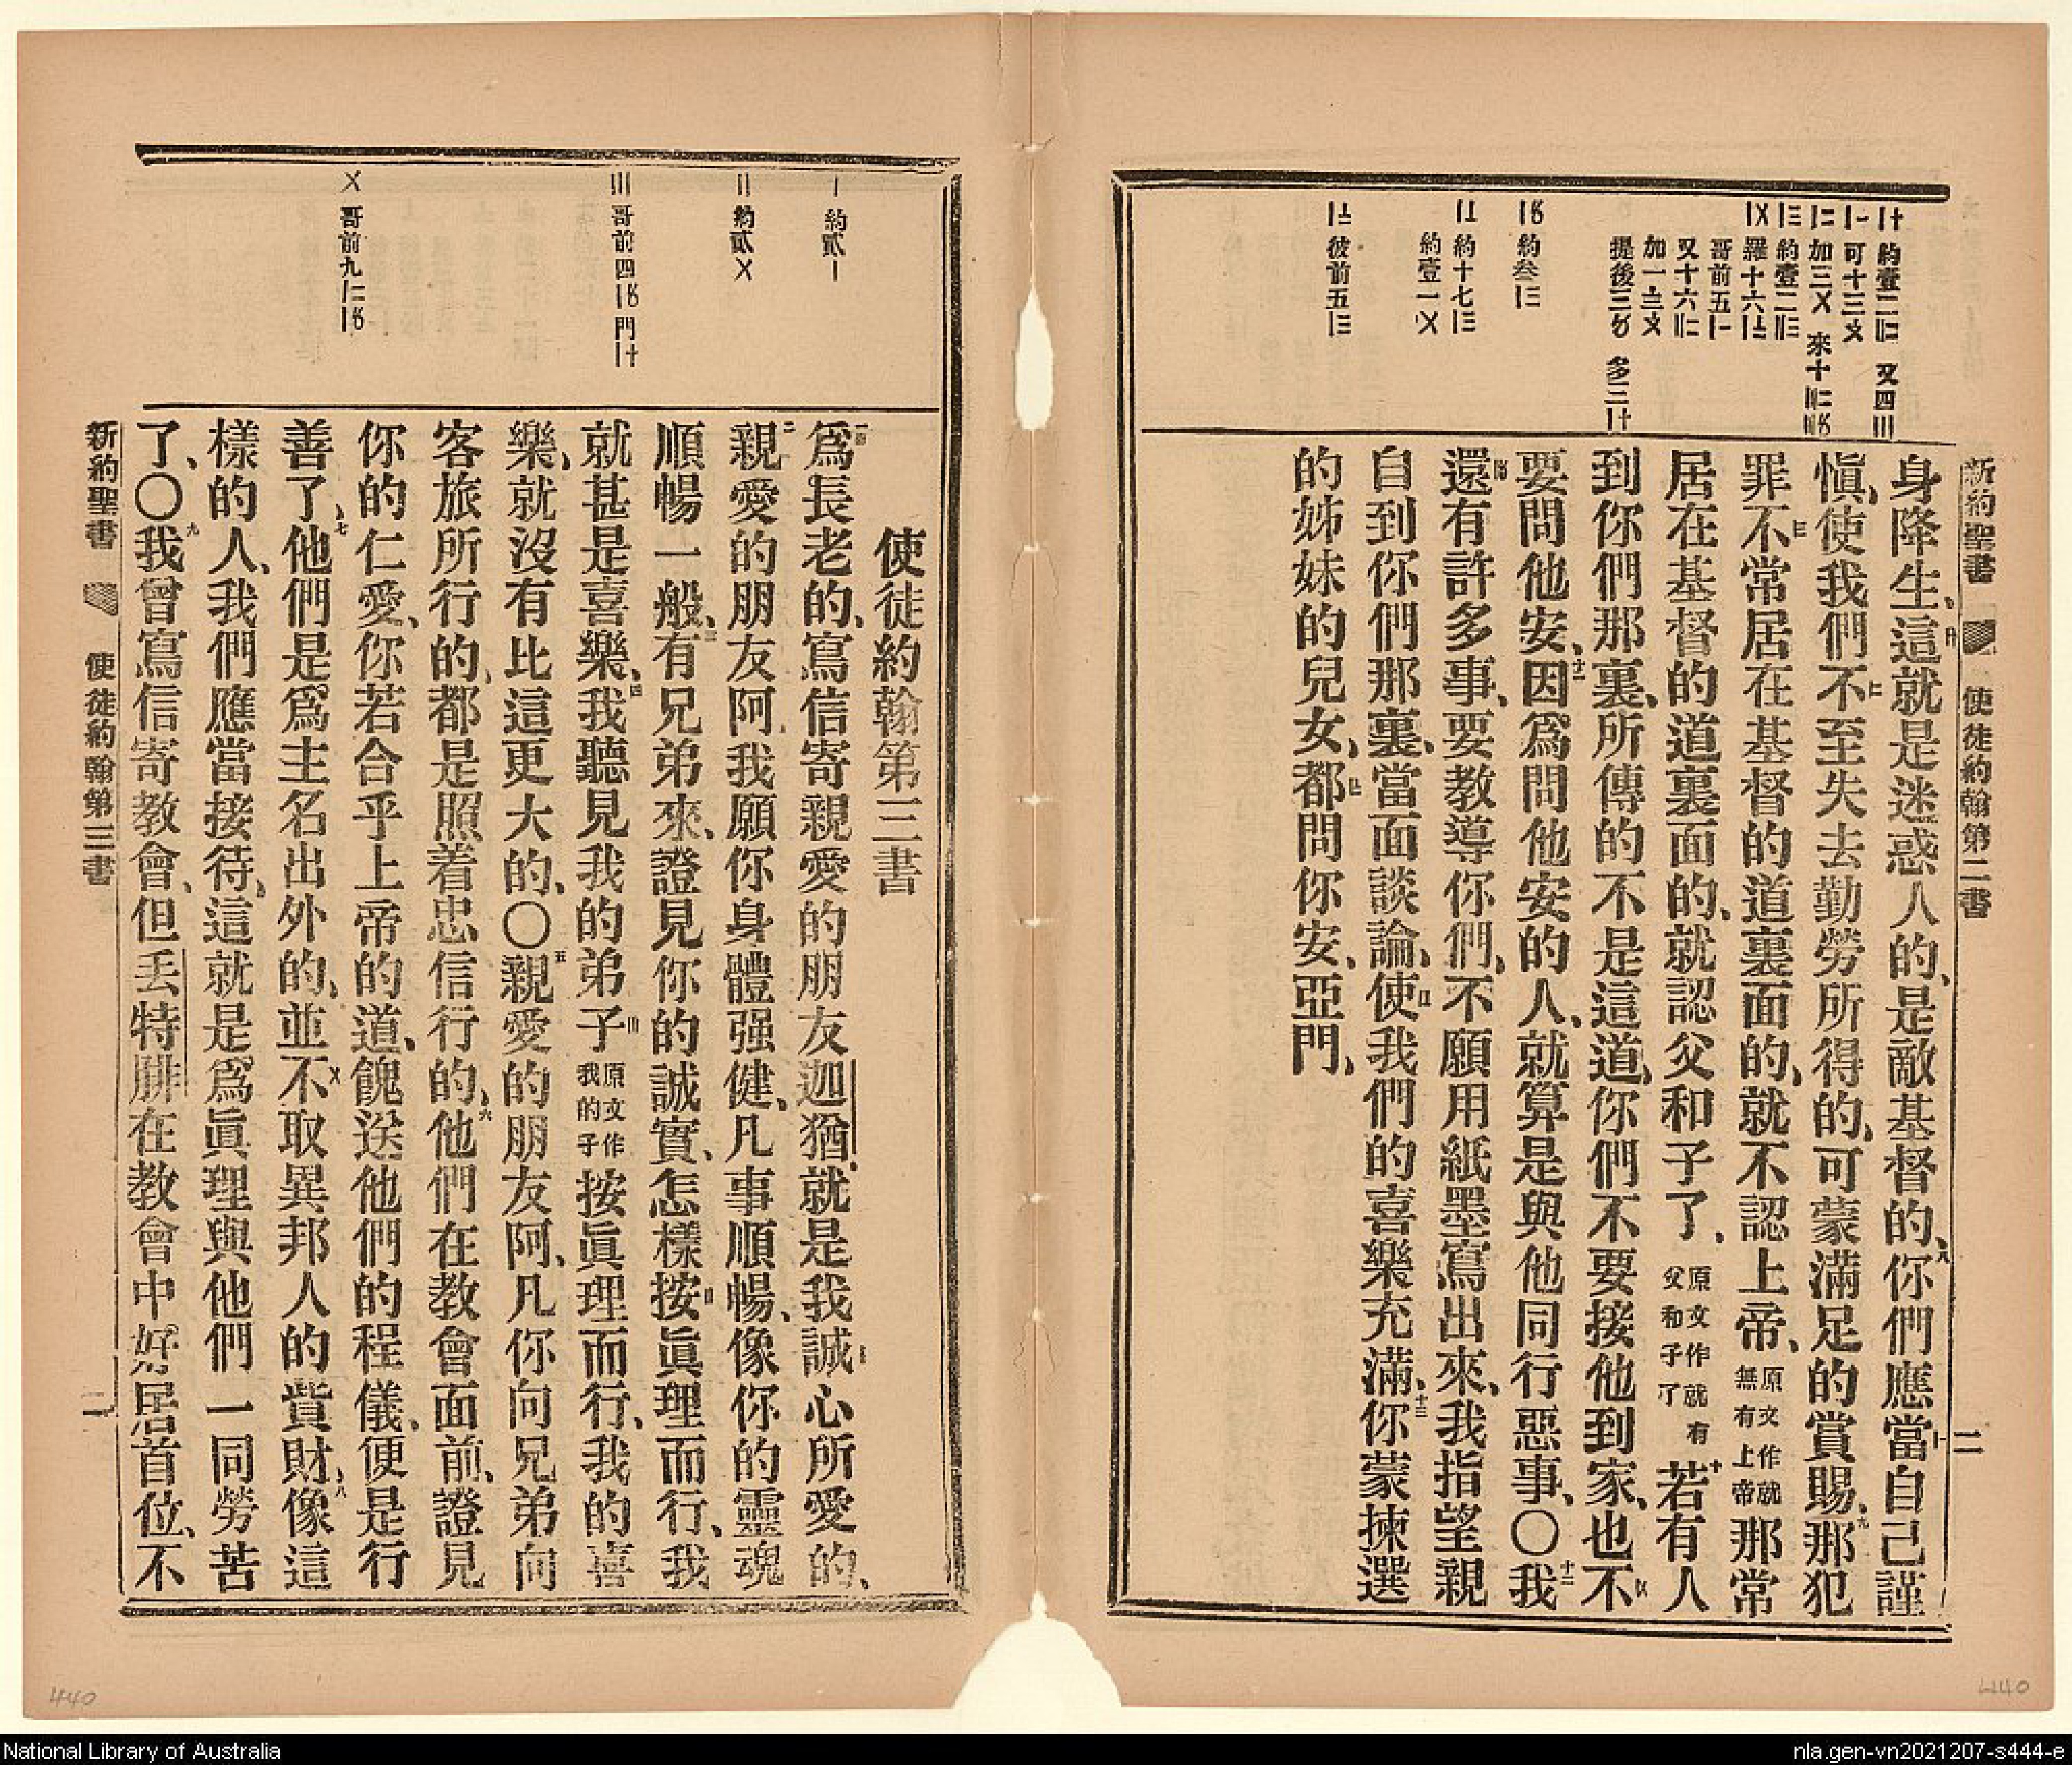 新約聖書 使徒約翰第二書 二
〡十 約壹二〢二 又四〣
〡一 可十三〤
〡二 加三〤 來十〸
〡三 約壹二〢三
〡〤 羅十六
哥前五〡一
又十六〢二
加一
提後三 多三〡十
約叁
約十七〡三
約壹一〤
彼前五〡三
身降生、這就是迷惑人的、是敵基督的、八你們應當自己謹
愼、使我們不至失去勤勞所得的、可蒙滿足的賞賜、九那犯
罪不常居在基督的道裏面的、就不認上帝、原文作就無有上帝那常
居在基督的道裏面的、就認父和子了、原文作就有父和子了十若有人
到你們那裏、所傳的不是這道、你們不要接他到家、也不
要問他安、十一因爲問他安的人、就算是與他同行惡事、〇十二我
還有許多事、要教導你們、不願用紙墨寫出來、我指望親
自到你們那裏、當面談論、使我們的喜樂充滿、十三你蒙揀選
的姊妹的兒女、都問你安、亞門、
〡 約貳〡
〢 約貳〤
〣 哥前四〡 門〡十
〤 哥前九〡二
使徒約翰第三書
一爲長老的、寫信寄親愛的朋友迦猶、就是我誠心所愛的、
二親愛的朋友阿、我願你身體强健、凡事順暢、像你的靈魂
順暢一般、三有兄弟來、證見你的誠實、怎樣按眞理而行、我
就甚是喜樂、四我聽見我的弟子原文作我的子按眞理而行、我的喜
樂、就沒有比這更大的、〇五親愛的朋友阿、凡你向兄弟向
客旅所行的、都是照着忠信行的、六他們在教會面前、證見
你的仁愛、你若合乎上帝的道、餽送他們的程儀、便是行
善了、七他們是爲主名出外的、並不取異邦人的貲財、八像這
樣的人、我們應當接待、這就是爲眞理與他們一同勞苦
了、〇九我曾寫信寄教會、但丢特腓在教會中好居首位、不
新約聖書 使徒約翰第三書 二
440
440
National Library of Australia
nla.gen-vn2021207-s444-e